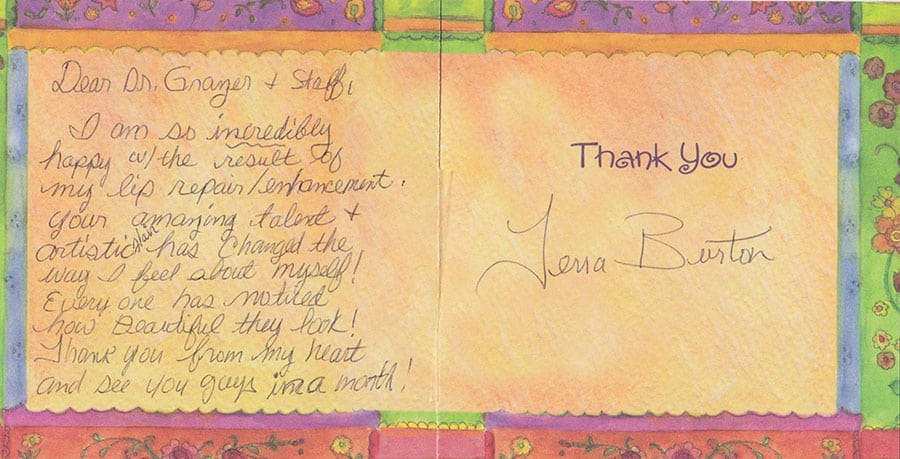 Dear Dr. Grazer + Staff,
I am so incredibly
happy w/the result of
my lip repair/enhancement.
Your amazing talent +
artistic flair has changed the
way I feel about myself!
Every one has noticed
how Beautiful they look!
Thank you from my heart
and see you guys in a month!
Thank You
Burton